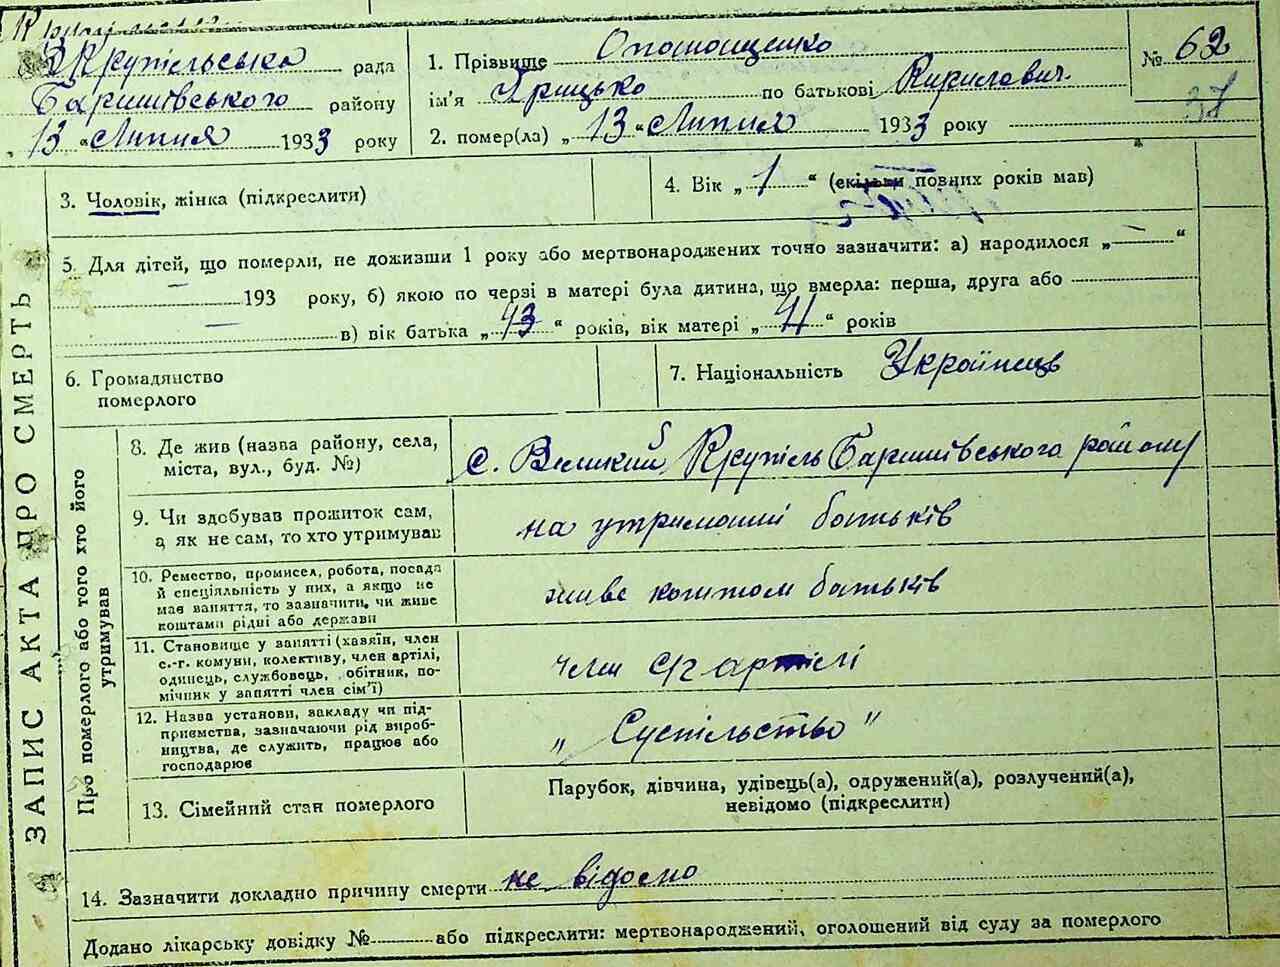 В Крупільська рада
Баришівського району
„ 13 “ Липня 1933 року
1. Прізвище Опанащенко
ім'я Грицько по батькові Кирилович
2. помер(ла) „ 13 “ Липня 1933 року
№ 62
37
ЗАПИС АКТА ПРО СМЕРТЬ
3. Чоловік, жінка (підкреслити)
4. Вік „ 1 “ (скільки повних років мав)
5. Для дітей, що померли, не доживши 1 року або мертвонароджених точно зазначити: а) народилося „ — “
193 року, б) якою по черзі в матері була дитина, що вмерла: перша, друга або
— в) вік батька „ 43 “ років, вік матері „ 41 “ років
6. Громадянство
померлого
7. Національність Українець
Про померлого або того хто його
утримував
8. Де жив (назва району, села,
міста, вул., буд. №)
с. Великий Крупіль Баришівського району
9. Чи здобував прожиток сам,
а як не сам, то хто утримував
на утриманні батьків
10. Ремество, промисел, робота, посада
й спеціяльність у них, а якщо не
мав заняття, то зазначити, чи живе
коштами рідні або держави
живе коштом батьків
11. Становище у занятті (хазяїн, член
с.-г. комуни, колективу, член артілі,
одинець, службовець, робітник, по-
мічник у занятті член сім'ї)
член с/г артілі
12. Назва установи, закладу чи під-
приємства, зазначаючи рід вироб-
ництва, де служить, працює або
господарює
„ Суспільство "
13. Сімейний стан померлого
Парубок, дівчина, удівець(а), одружений(а), розлучений(а),
невідомо (підкреслити)
14. Зазначити докладно причину смерти не відомо
Додано лікарську довідку № або підкреслити: мертвонароджений, оголошений від суду за померлого